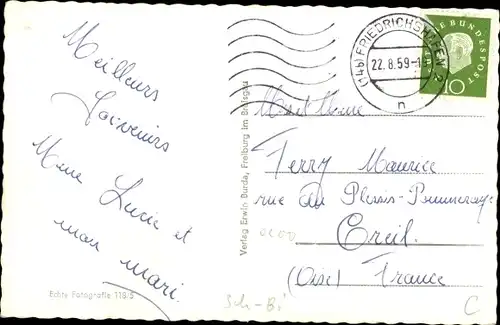 Meilleurs
Souvenirs
Mme Lucie et
mon mari.
Echte Fotografie 118/5
Verlag Erwin Burda, Freiburg im Breisgau
(14b) FRIEDRICHSHAFEN 2
22.8.59-18
n
BUNDESPOST
10
Terry Maurice
rue du Plessis-Pommeraye
Creil.
(Oise) France
Sch-Bi
C